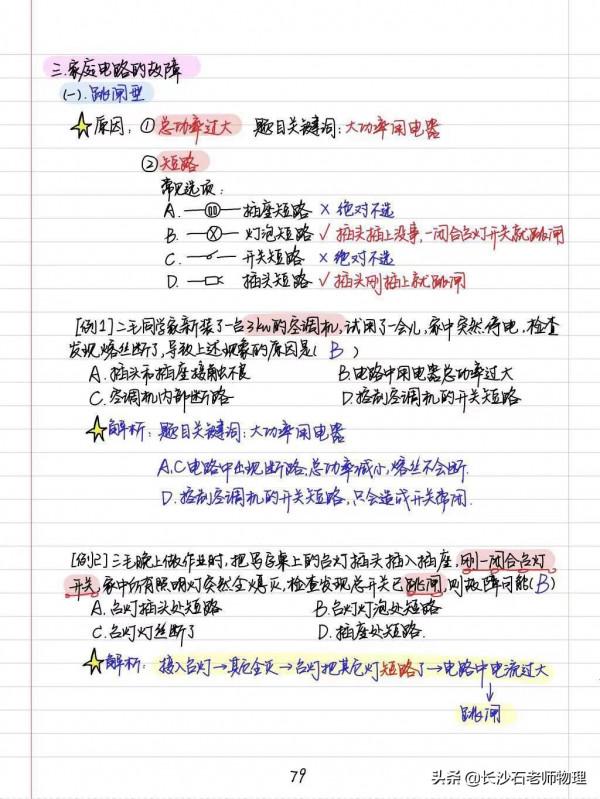 三.家庭电路的故障
(一).跳闸型
原因:①总功率过大 题目关键词:大功率用电器
②短路
常见选项:
A. 插座短路 × 绝对不选
B. 灯泡短路 √ 插头插上没事,一闭合台灯开关就跳闸
C. 开关短路 × 绝对不选
D. 插头短路 √ 插头刚插上就跳闸
[例1]二毛同学家新装了一台3kw的空调机,试用了一会儿,家中突然停电,检查
发现熔丝断了,导致上述现象的原因是( B )
A.插头和插座接触不良 B.电路中用电器总功率过大
C.空调机内部断路 D.控制空调机的开关短路
解析:题目关键词:大功率用电器
A.C电路中出现断路,总功率减小,熔丝不会断.
D.控制空调机的开关短路,只会造成开关常闭.
[例2]三毛晚上做作业时,把写字桌上的台灯插头插入插座,刚一闭合台灯
开关,家中所有照明灯突然全熄灭,检查发现总开关已跳闸,则故障可能(B)
A.台灯插头处短路 B.台灯灯泡处短路
C.台灯灯丝断了 D.插座处短路.
解析:接入台灯→其它全灭→台灯把其它灯短路了→电路中电流过大
↓
跳闸
79
头条@长沙石老师物理